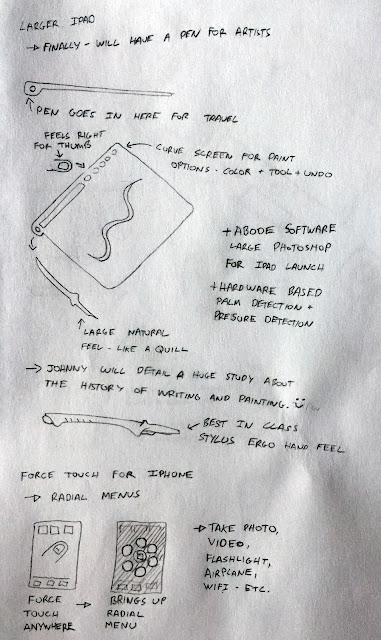 LARGER IPAD
→ FINALLY - WILL HAVE A PEN FOR ARTISTS
PEN GOES IN HERE FOR TRAVEL
FEELS RIGHT
FOR THUMB
CURVE SCREEN FOR PAINT
OPTIONS - COLOR + TOOL + UNDO
+ ABODE SOFTWARE
LARGE PHOTOSHOP
FOR IPAD LAUNCH
+ HARDWARE BASED
PALM DETECTION +
PRESURE DETECTION
LARGE NATURAL
FEEL - LIKE A QUILL
→ JOHNNY WILL DETAIL A HUGE STUDY ABOUT
THE HISTORY OF WRITING AND PAINTING.
BEST IN CLASS
STYLUS ERGO HAND FEEL
FORCE TOUCH FOR IPHONE
→ RADIAL MENUS
FORCE
TOUCH
ANYWHERE
→ BRINGS UP
RADIAL
MENU
→ TAKE PHOTO,
VIDEO,
FLASHLIGHT,
AIRPLANE,
WIFI - ETC.